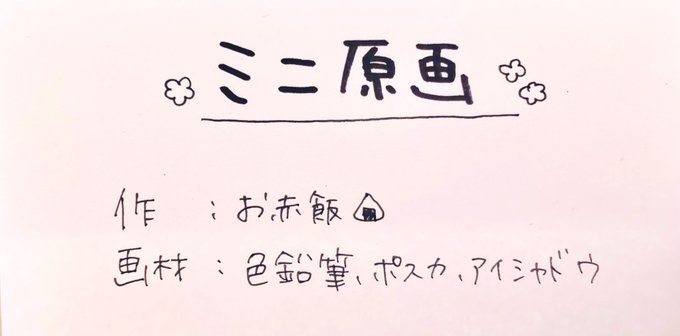 ミニ原画
作 : お赤飯🍙
画材 : 色鉛筆、ポスカ、アイシャドウ